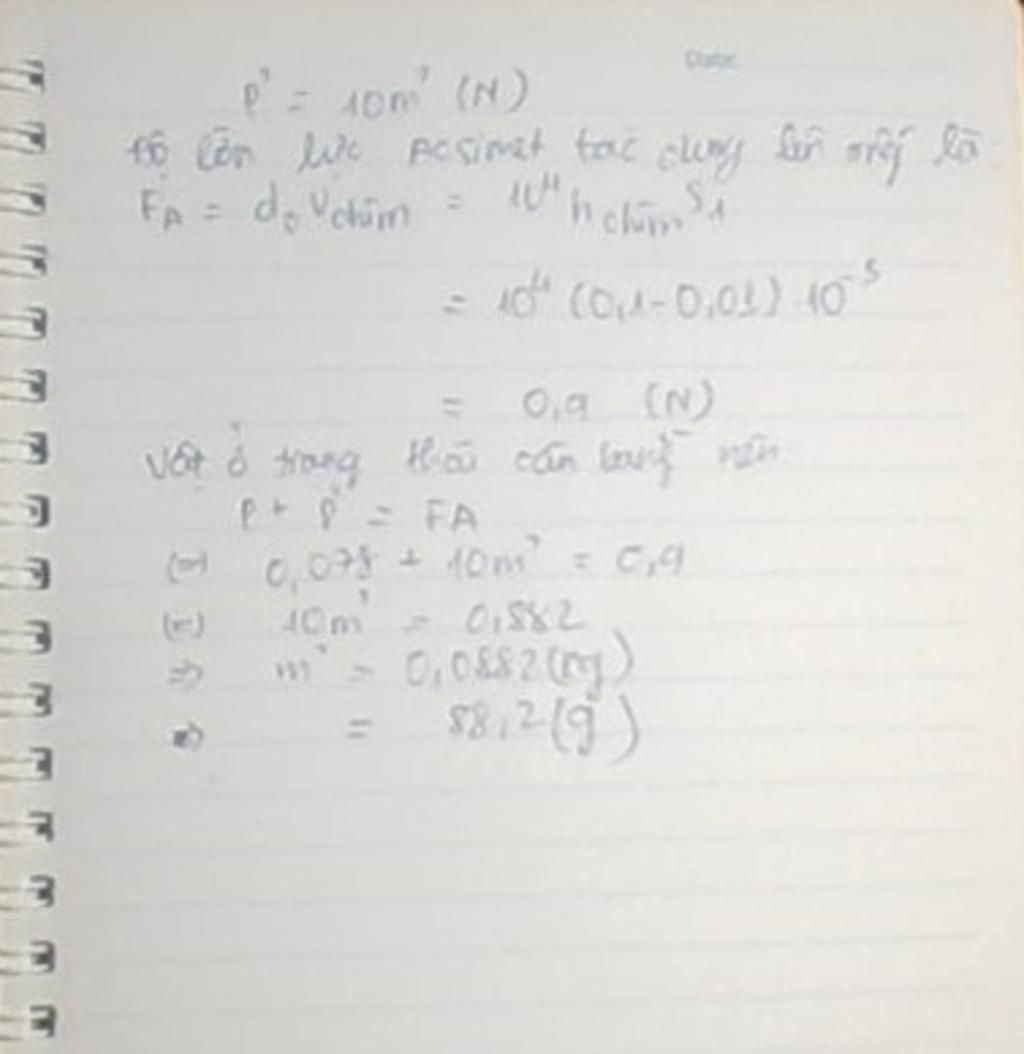 Date
P' = 10m' (N)
Độ lớn lực Acsimet tác dụng lên ống là
F_A = d₀ V_chìm = 10⁴ h_chìm S₁
= 10⁴ (0,1-0,01) 10⁻³
= 0,9 (N)
Vật ở trạng thái cân bằng nên
P + P' = FA
(=) 0,078 + 10m' = 0,9
(=) 10m' = 0,882
=> m' = 0,0882 (kg)
=> = 88,2 (g)